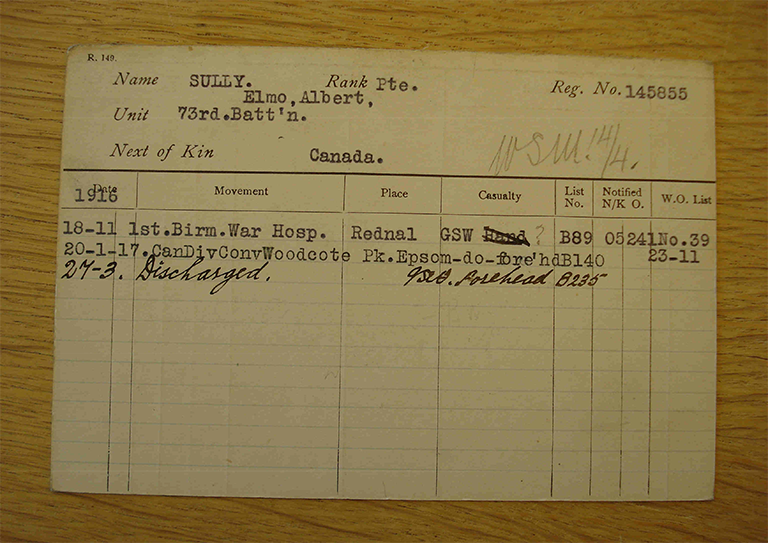 R. 149.
Name SULLY. Rank Pte. Reg. No. 145855
Elmo, Albert,
Unit 73rd.Batt'n.
Next of Kin Canada.
Date Movement Place Casualty List No. Notified N/K O. W.O. List
1916
18-11 1st.Birm.War Hosp. Rednal GSW Hand ? B89 05241 No.39
20-1-17. CanDivConvWoodcote Pk.Epsom-do-fore'hd B140 23-11
27-3. Discharged. Forehead B235